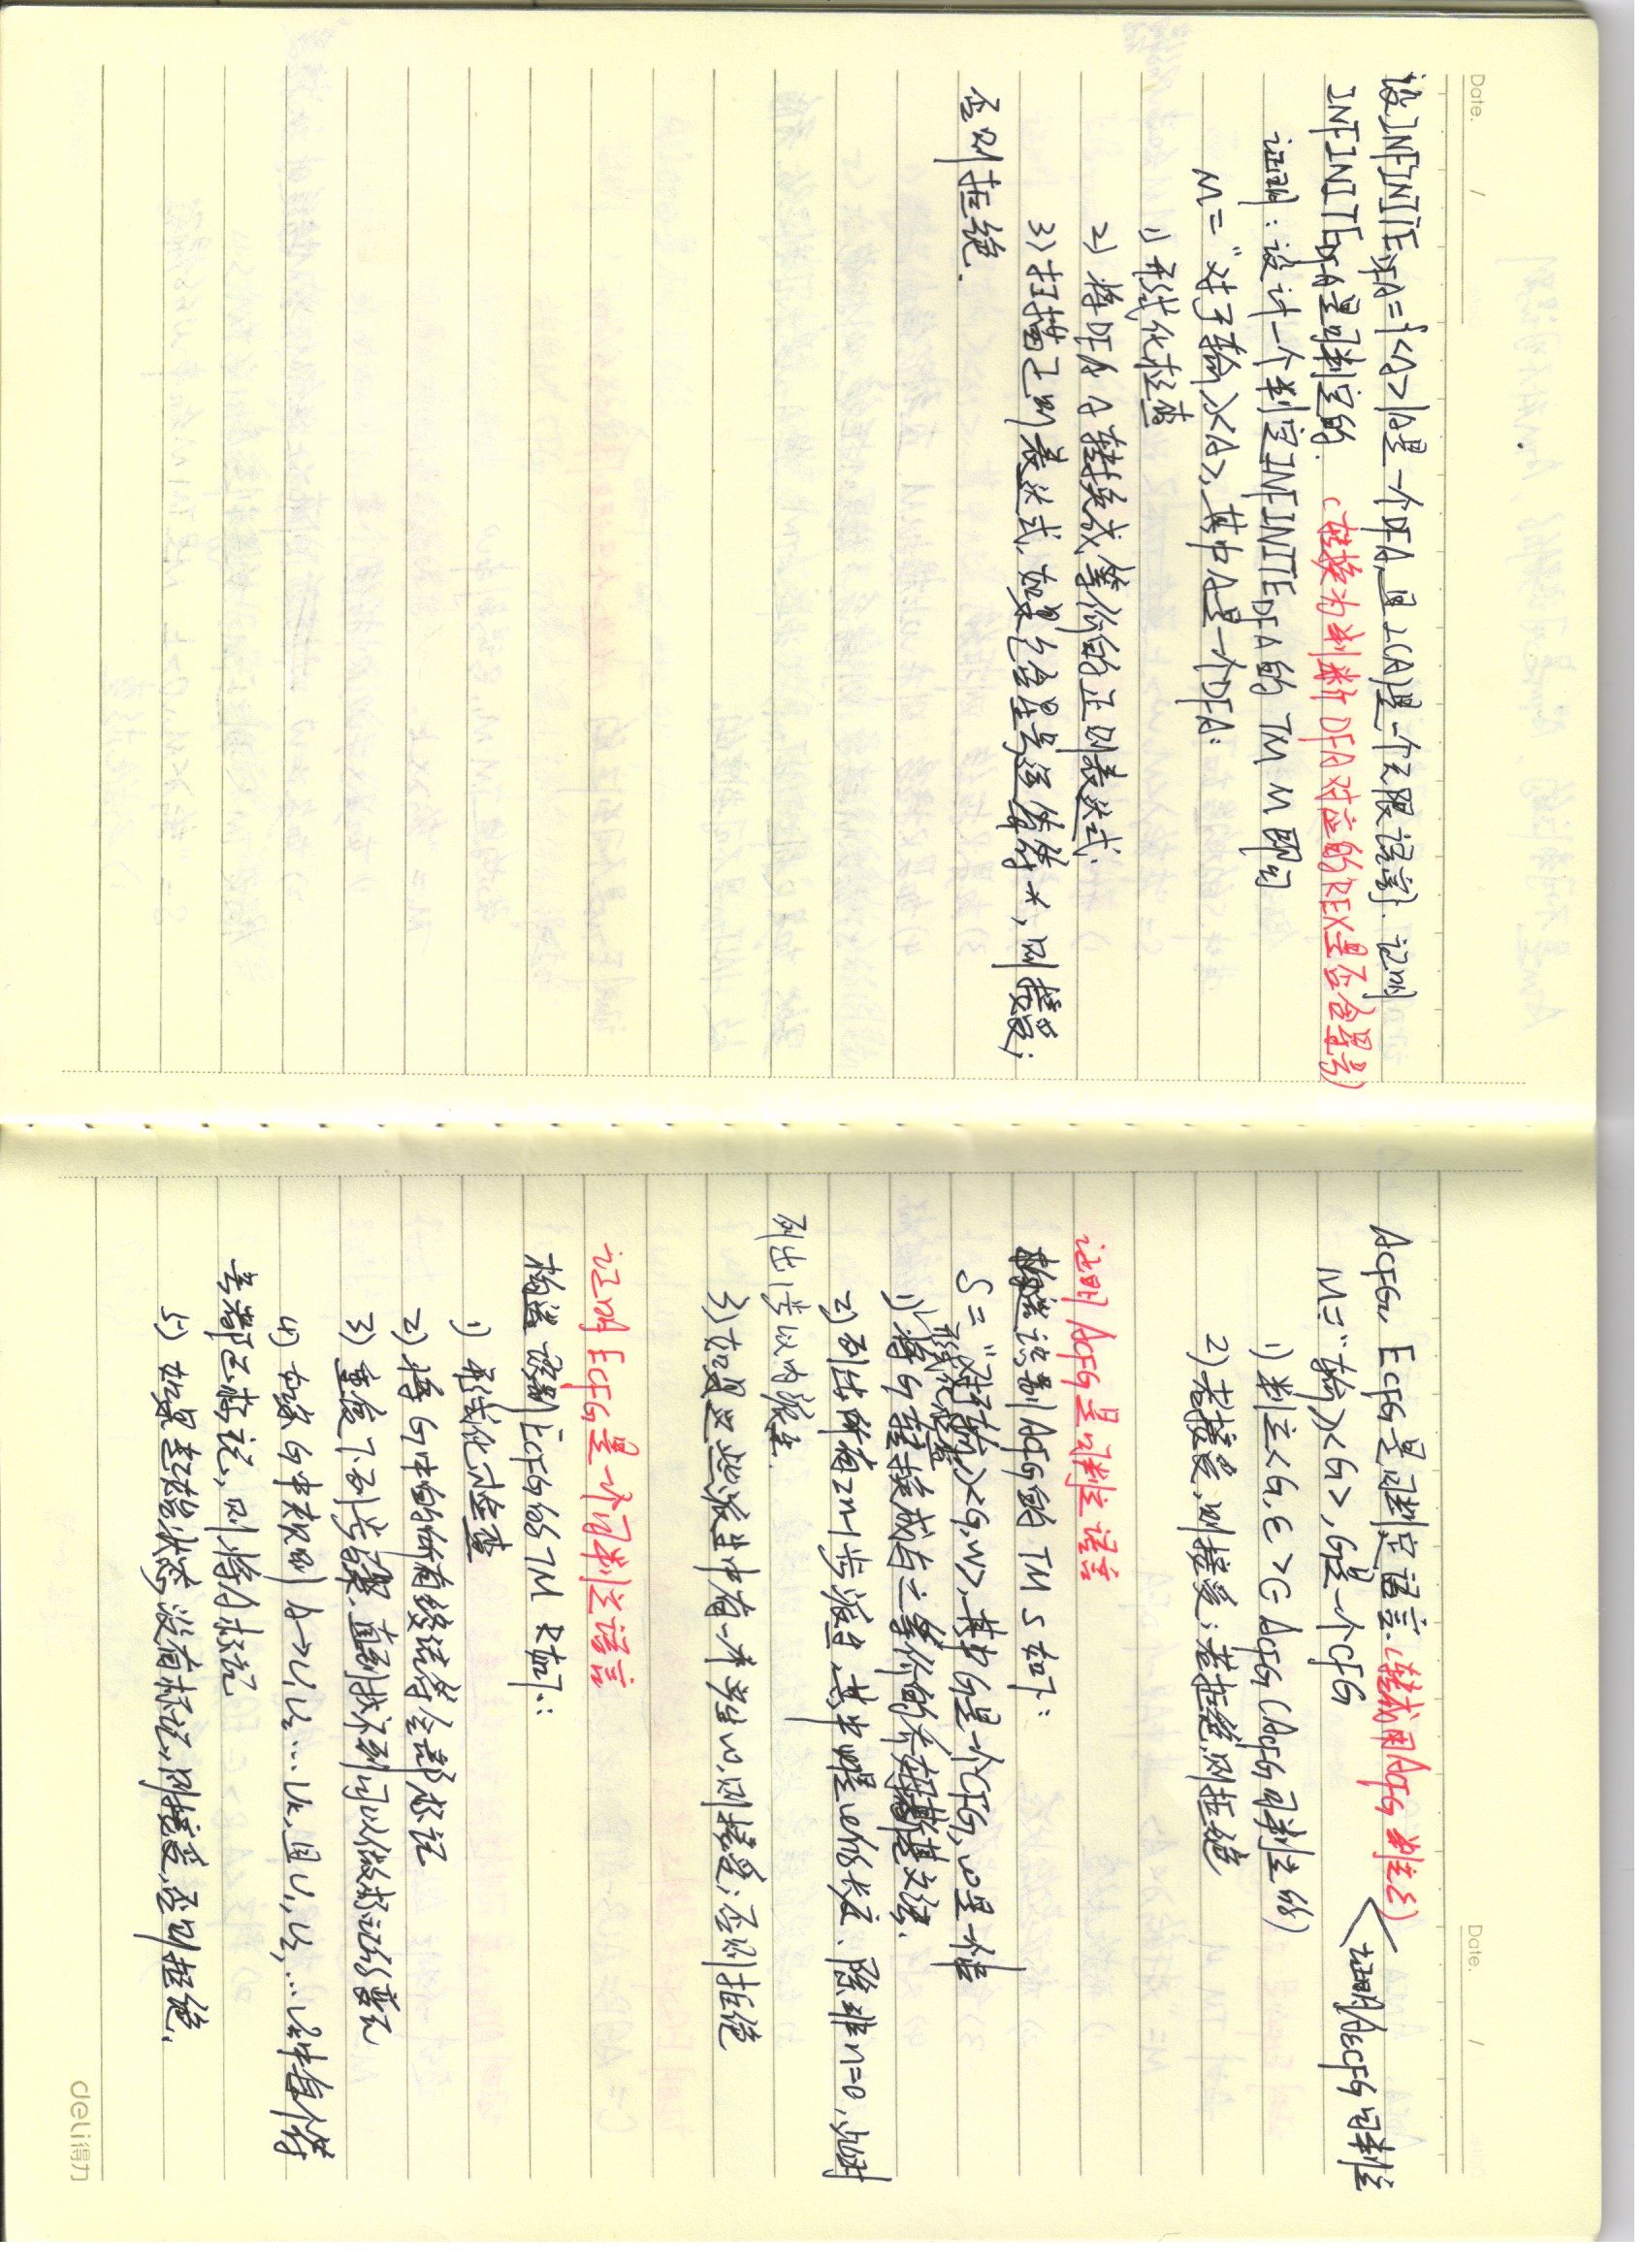 Date. /
设INFINITE_DFA={<A>|A是一个DFA,且L(A)是一个无限语言}. 证明
INFINITE_DFA是可判定的. (转换为判断DFA对应的REX是否含星号)
证明:设计一个判定INFINITE_DFA的 TM M 即可
M="对于输入<A>,其中A是一个DFA:
1) 形式化检查
2) 将DFA A转换成等价的正则表达式.
3) 扫描正则表达式.如果包含星号运算符*,则接受;
否则拒绝.
Date. /
A_CFG, E_CFG是可判定语言.(转成用A_CFG判定ε)
证明AεCFG可判定
M="输入<G>,G是一个CFG
1) 判定<G,ε>∈A_CFG(A_CFG可判定的)
2) 若接受,则接受;若拒绝,则拒绝
证明 A_CFG是可判定语言
构造识别A_CFG的 TM S 如下:
S="对于输入<G,w>,其中G是一个CFG,w是一个串
形式化检查
1) 将G转换成与之等价的乔姆斯基文法.
2) 列出所有2n-1步派生,其中n是w的长度.除非n=0,此时
列出1步以内派生.
3) 如果这些派生中有一个产生w,则接受;否则拒绝
证明E_CFG是一个可判定语言
构造识别E_CFG的TM R如下:
1) 形式化检查
2) 将G中的所有终结符全部标记
3) 重复下列步骤,直到找不到可以做标记的变元
4) 如果G中规则A→U₁U₂…Uk,且U₁,U₂,…Uk中每个符
号都已标记,则将A标记
5) 如果起始状态没有标记,则接受,否则拒绝.
deli得力